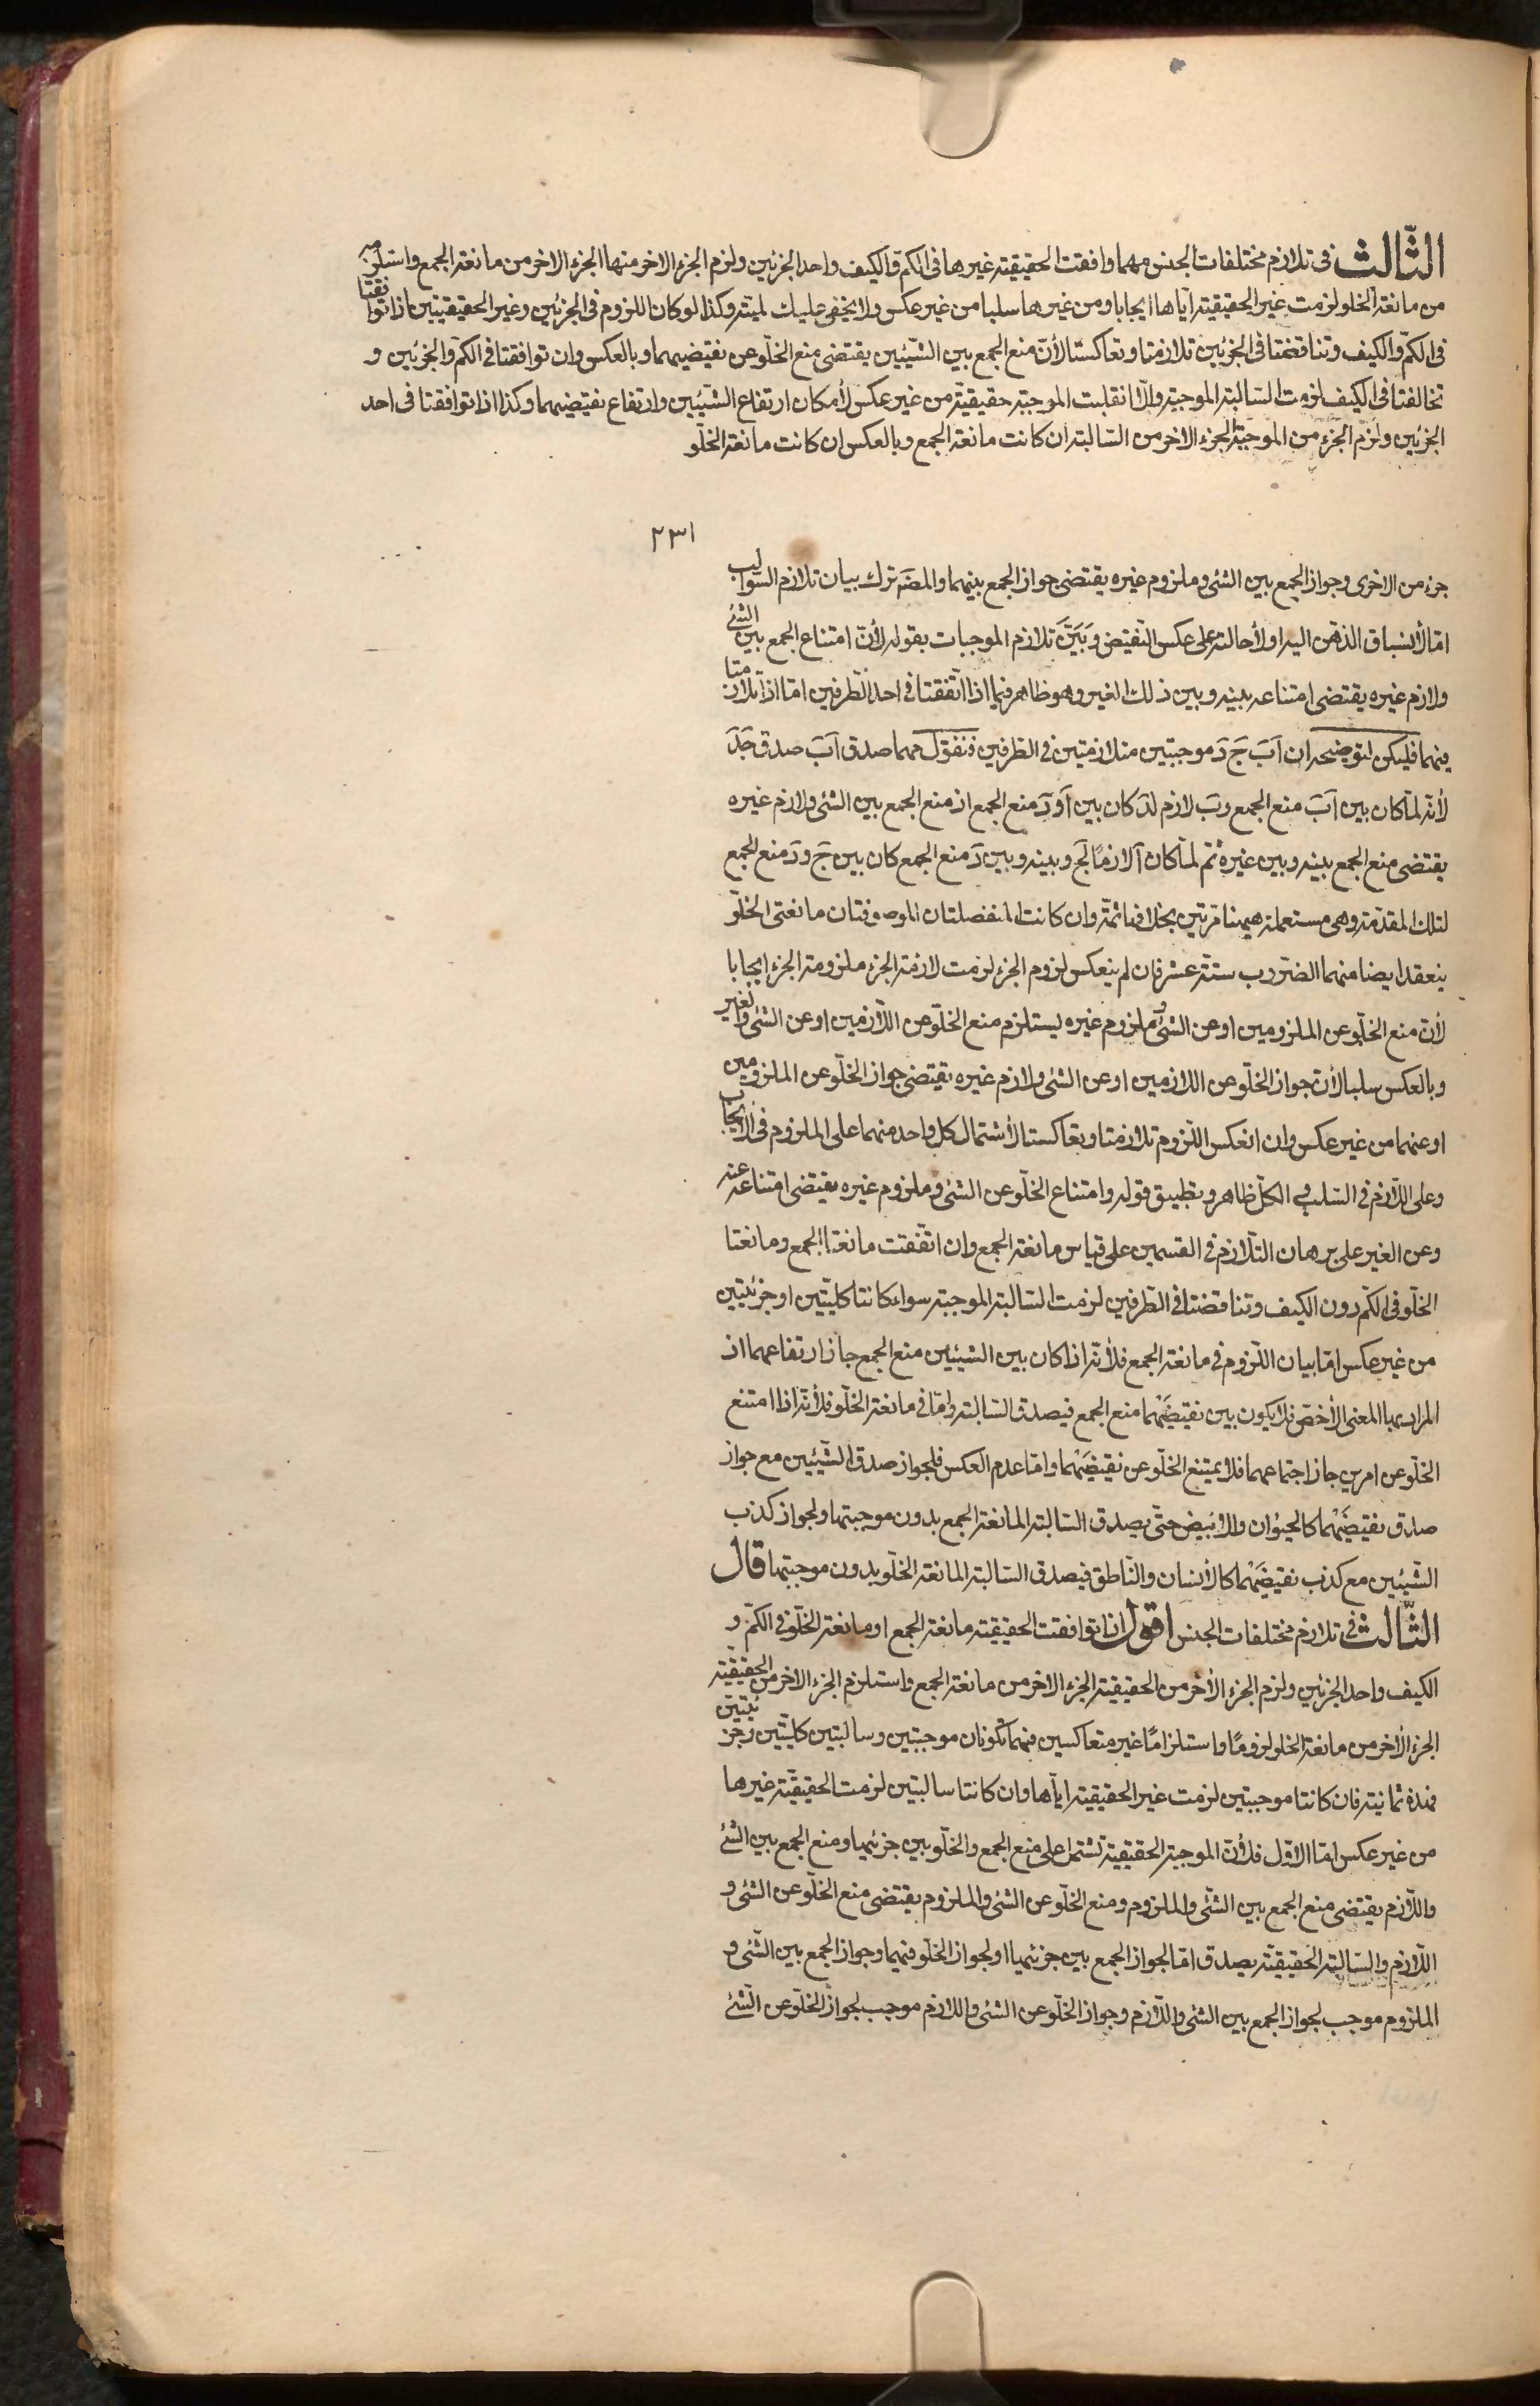 الثّالث فى تلازم مختلفات الجنس مهما وافقت الحقيقيّة غيرها فى الكمّ والكيف واحد الجزئين ولزم الجزء الاخر منها الجزء الاخر من مانعة الجمع واستلزمه
من مانعة الخلو لزمت غير الحقيقيّة ايّاها ايجابا ومن غيرها سلبا من غير عكس ولا يخفى عليك لميّته وكذا لو كان اللزوم فى الجزئين وغير الحقيقيّتين اذا توافقتا
فى الكمّ والكيف وتناقضتا فى الجزئين تلازمتا وتعاكستا لأنّ منع الجمع بين الشّيئين يقتضى منع الخلّو عن نقيضيهما وبالعكس وان توافقتا فى الكمّ والجزئين و
تخالفتا فى الكيف لزمت السّالبة الموجبة والّا انقلبت الموجبة حقيقيّة من غير عكس لأمكان ارتفاع الشّيئين وارتفاع نقيضيهما وكذا اذا توافقتا فى احد
الجزئين ولزم الجزء من الموجبة الجزء الاخر من السّالبة ان كانت مانعة الجمع وبالعكس ان كانت مانعة الخلّو
٢٣١
جزء من الاخرى وجواز الجمع بين الشئ وملزوم غيره يقتضى جواز الجمع بينهما والمصَ ترك بيان تلازم السّوالب
امّا لأنسباق الذهن اليه او لأحالته على عكس النّقيض وبَيَّنَ تلازم الموجبات بقوله لأنّ امتناع الجمع بين الشئ
ولازم غيره يقتضى امتناعه بينه وبين ذلك الغير وهو ظاهر فيما اذا اتّفقتا فى احد الطّرفين امّا اذا تلازمتا
فيهما فليكن لتوضيحه ان آبَ جَ دَ موجبتين متلازمتين فى الطرفين فنقول مهما صدق آبَ صدق جَدَ
لأنّه لمّا كان بين آبَ منع الجمع وبَ لازم لدَ كان بين آ ودَ منع الجمع اذ منع الجمع بين الشئ ولازم غيره
يقتضى منع الجمع بينه وبين غيره ثمّ لمّا كان آ لازمًا لجَ وبينه وبين دَ منع الجمع كان بين جَ ودَ منع الجمع
لتلك المقدّمة وهى مستعملة هيهنا مرّتين بخلافها ثمّة وان كانت المنفصلتان الموصوفتان مانعتى الخلّو
ينعقد ايضا منهما الضّروب ستّة عشر فان لم ينعكس لزوم الجزء لزمت لازمة الجزء ملزومة الجزء ايجابا
لأنّ منع الخلّو عن الملزومين او عن الشئ وملزوم غيره يستلزم منع الخلّو عن اللّازمين او عن الشئ والغير
وبالعكس سلبا لأنّ جواز الخلّو عن اللازمين او عن الشئ ولازم غيره يقتضى جواز الخلّو عن الملزومين
او عنهما من غير عكس وان انعكس اللّزوم تلازمتا وتعاكستا لأشتمال كل واحد منهما على الملزوم فى الأيجاب
وعلى اللّازم فى السّلب والكلّ ظاهر وتطبيق قوله وامتناع الخلّو عن الشئ وملزوم غيره يقتضى امتناعه عنه
وعن الغير على برهان التّلازم فى القسمين على قياس مانعة الجمع وان اتّفقت مانعتا الجمع ومانعتا
الخلّو فى الكمّ دون الكيف وتناقضتا فى الطّرفين لزمت السّالبة الموجبة سواء كانتا كليّتين او جزئيّتين
من غير عكس امّا بيان اللّزوم فى مانعة الجمع فلأنّه اذا كان بين الشيئين منع الجمع جاز ارتفاعهما اذ
المراد بها المعنى الأخصّ فلا يكون بين نقيضَيْهما منع الجمع فيصدق السّالبة وامّا فى مانعة الخلّو فلأنّه اذا امتنع
الخلّو عن امرين جاز اجتماعهما فلا يمتنع الخلّو عن نقيضَيْهما وامّا عدم العكس فلجواز صدق الشّيئين مع جواز
صدق نقيضَيْهما كالحيوان والأبيض حتّى يصدق السّالبة المانعة الجمع بدون موجبتها ولجواز كذب
الشّيئين مع كذب نقيضَيْهما كالأنسان والنّاطق فيصدق السّالبة المانعة الخلّو بدون موجبتها قال
الثّالث فى تلازم مختلفات الجنس اقول اذا توافقت الحقيقيّة مانعة الجمع او مانعة الخلّو فى الكمّ و
الكيف واحد الجزئين ولزم الجزء الأخر من الحقيقيّة الجزء الاخر من مانعة الجمع واستلزم الجزء الاخر من الحقيقيّة
الجزء الأخر من مانعة الخلو لزومًا واستلزامًا غير متعاكسين فهما تكونان موجبتين وسالبتين كليّتين وجزئيّتين
فهذه ثمانية فان كانتا موجبتين لزمت غير الحقيقيّة ايّاها وان كانتا سالبتين لزمت الحقيقيّة غيرها
من غير عكس امّا الاوّل فلأنّ الموجبة الحقيقيّة تشتمل على منع الجمع والخلّو بين جزئيها ومنع الجمع بين الشئ
واللّازم يقتضى منع الجمع بين الشّئ والملزوم ومنع الخلّو عن الشئ والملزوم يقتضى منع الخلّو عن الشئ و
اللّازم والسّالبة الحقيقيّة يصدق امّا لجواز الجمع بين جزئيها او لجواز الخلّو فيهما وجواز الجمع بين الشّئ و
الملزوم موجب لجواز الجمع بين الشئ واللّازم وجواز الخلّو عن الشئ واللازم موجب لجواز الخلّو عن الشّئ